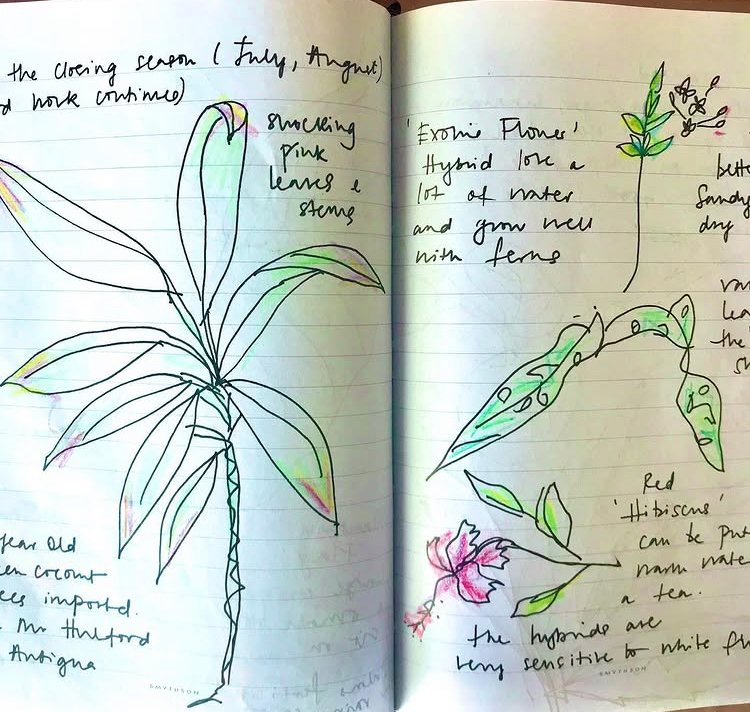 the closing season (July, August)
work continued)
shocking
pink
leaves &
stems
year old
coconut
imported.
Mr Hulford
Antigua
SMYTHSON
'Exotic Flower'
Hybrid love a
lot of water
and grow well
with ferns
Sandy
dry
the
Red
'Hibiscus'
can be put
warm wate
a tea.
the hybrids are
very sensitive to white
SMYTHSON